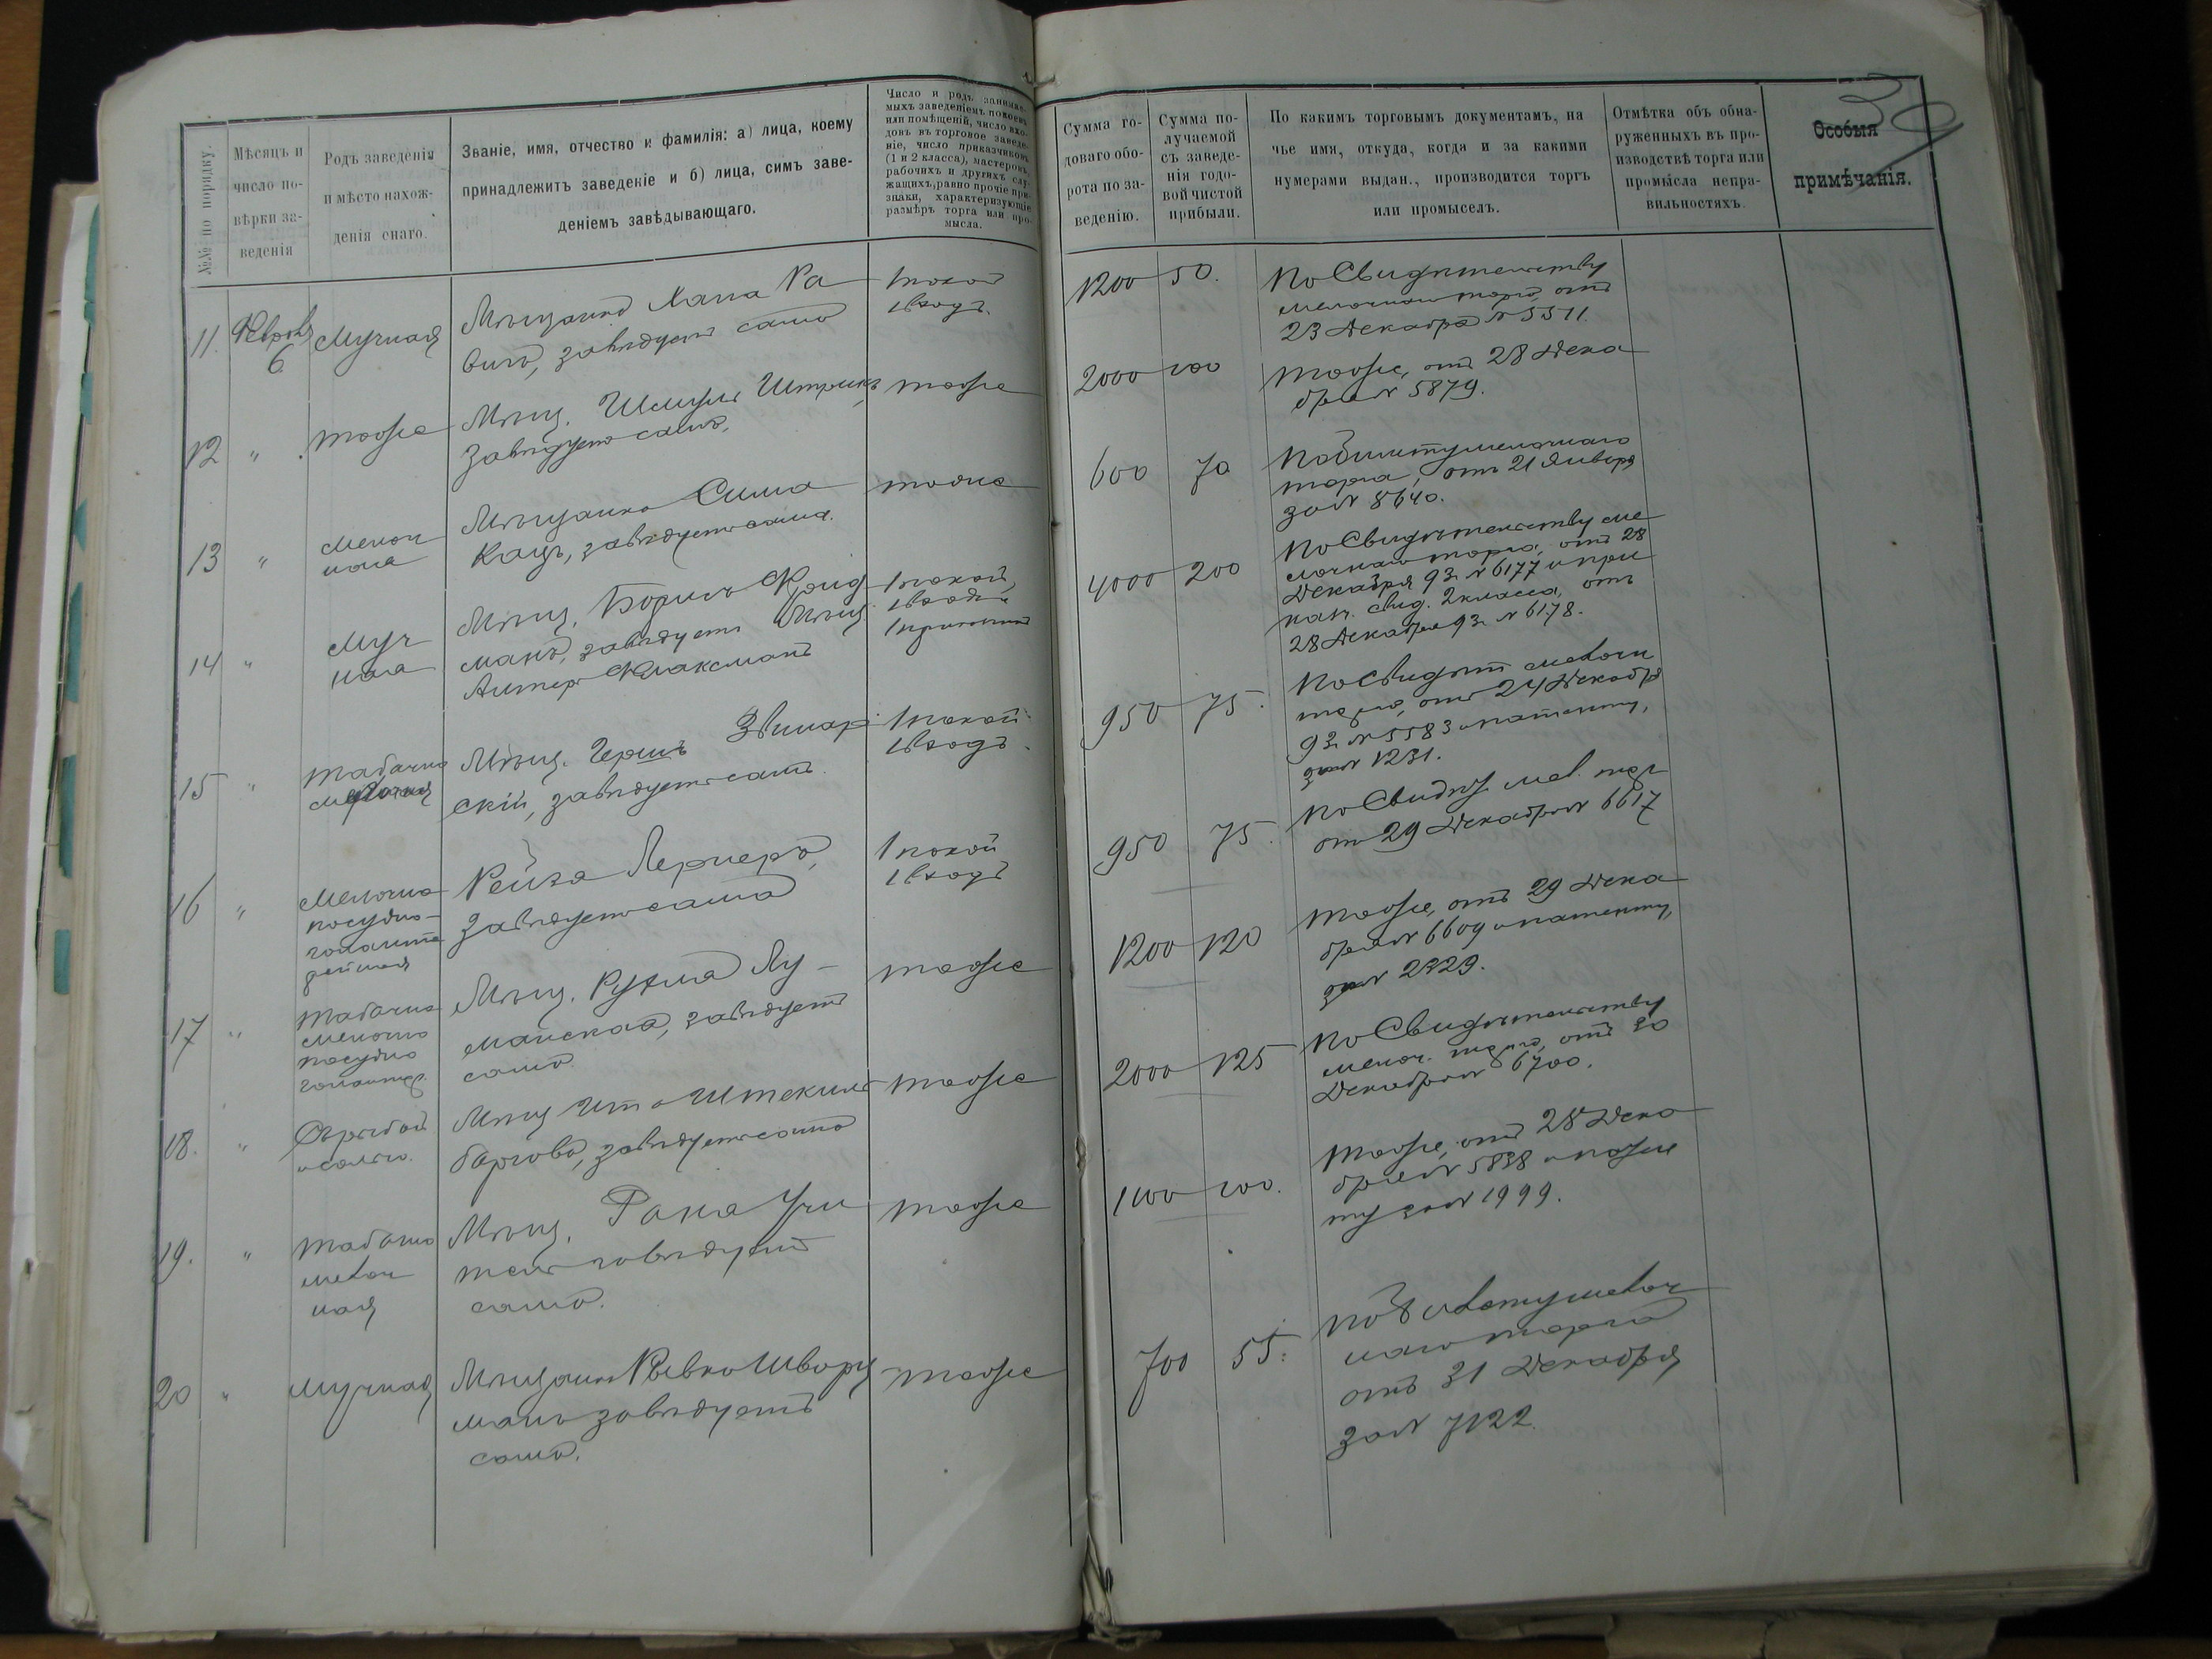 №№ по порядку.
Мѣсяцъ и
число по-
вѣрки за-
веденія
Родъ заведенія
и мѣсто нахож-
денія онаго.
Званіе, имя, отчество и фамилія: а) лица, коему
принадлежитъ заведеніе и б) лица, симъ заве-
деніемъ завѣдывающаго.
Число и родъ занимае-
мыхъ заведеніемъ покоевъ
или помѣщеній, число вхо-
довъ въ торговое заведе-
ніе, число приказчиковъ
(1 и 2 класса), мастеровъ,
рабочихъ и другихъ слу-
жащихъ, равно прочіе при-
знаки, характеризующіе
размѣръ торга или про-
мысла.
Сумма го-
доваго обо-
рота по за-
веденію.
Сумма по-
лучаемой
съ заведе-
нія годо-
вой чистой
прибыли.
По какимъ торговымъ документамъ, на
чье имя, откуда, когда и за какими
нумерами выдан., производится торгъ
или промыселъ.
Отмѣтка объ обна-
руженныхъ въ про-
изводствѣ торга или
промысла непра-
вильностяхъ.
Особыя
примѣчанія.
39
11.
Февраля
6
Мучная
Мѣщанинъ Хана Ра
вичъ, завѣдуетъ сама
1 покой
1 входъ.
1200
50.
По Свидѣтельству
мелочнаго торга, отъ
23 Декабря № 5511.
12
"
тоже
Мѣщ. Шмуль Штрикъ
завѣдуетъ самъ.
тоже
2000
100
тоже, отъ 28 Дека
бря № 5879.
13
"
мелоч
ная
Мѣщанка Сима
Кацъ, завѣдуетъ сама.
тоже
600
70
По билету мелочнаго
торга, отъ 21 Января
за № 8640.
14
"
Муч
ная
Мѣщ. Борисъ Фрид
манъ, завѣдуетъ Мѣщ.
Алтеръ Флаксманъ
1 покой,
1 входъ
4000
200
По Свидѣтельству ме
лочнаго торга, отъ 28
Декабря 93 г. № 6177 и при
каз. свид. 2 класса, отъ
28 Декабря 93 г. № 6178.
15
"
Табачно
мелочная
Мѣщ. Гершъ
скій, завѣдуетъ самъ.
1 покой
1 входъ.
950
75.
По свидѣт мелочн
торга, отъ 24 Декабря
93 г. № 5583 и патенту,
за № 1231.
16
"
Мелочно
посудно-
галанте
рейная
Рейза Лернеръ,
завѣдуетъ сама
1 покой
1 входъ
950
75.
По Свидѣт. мел. торг
отъ 29 Декабря № 6617
17
"
Табачно
мелочно
посудно
галантер.
Мѣщ. Рухла Лу-
манская, завѣдуетъ
сама.
тоже
1200
120
тоже, отъ 29 Дека
бря № 6609 и патенту,
за № 2329.
18.
"
Мѣщ Ита Штекель
баргова, завѣдуетъ сама
тоже
2000
125
По Свидѣтельству
мелоч. торга, отъ 30
Декабря № 6700.
19.
"
Табачно
мелоч
ная
Мѣщ. Учи
тель завѣдуетъ
сама.
тоже
1100
100.
тоже, отъ 28 Дека
бря № 5838 и патен
ту за № 1999.
20
"
мучная
Мѣщанка Ривка Шварц
манъ завѣдуетъ
сама.
тоже
700
55.
По билету мелоч
наго торга
отъ 31 Декабря
за № 7122.